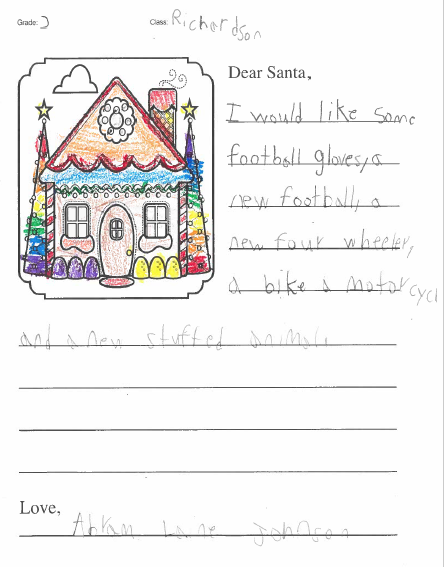 Grade: 2 Class: Richardson
Dear Santa,
I would like some
football gloves, a
new football, a
new four wheeler,
a bike a motorcycl
and a new stuffed animal
Love,
Lane Johnson